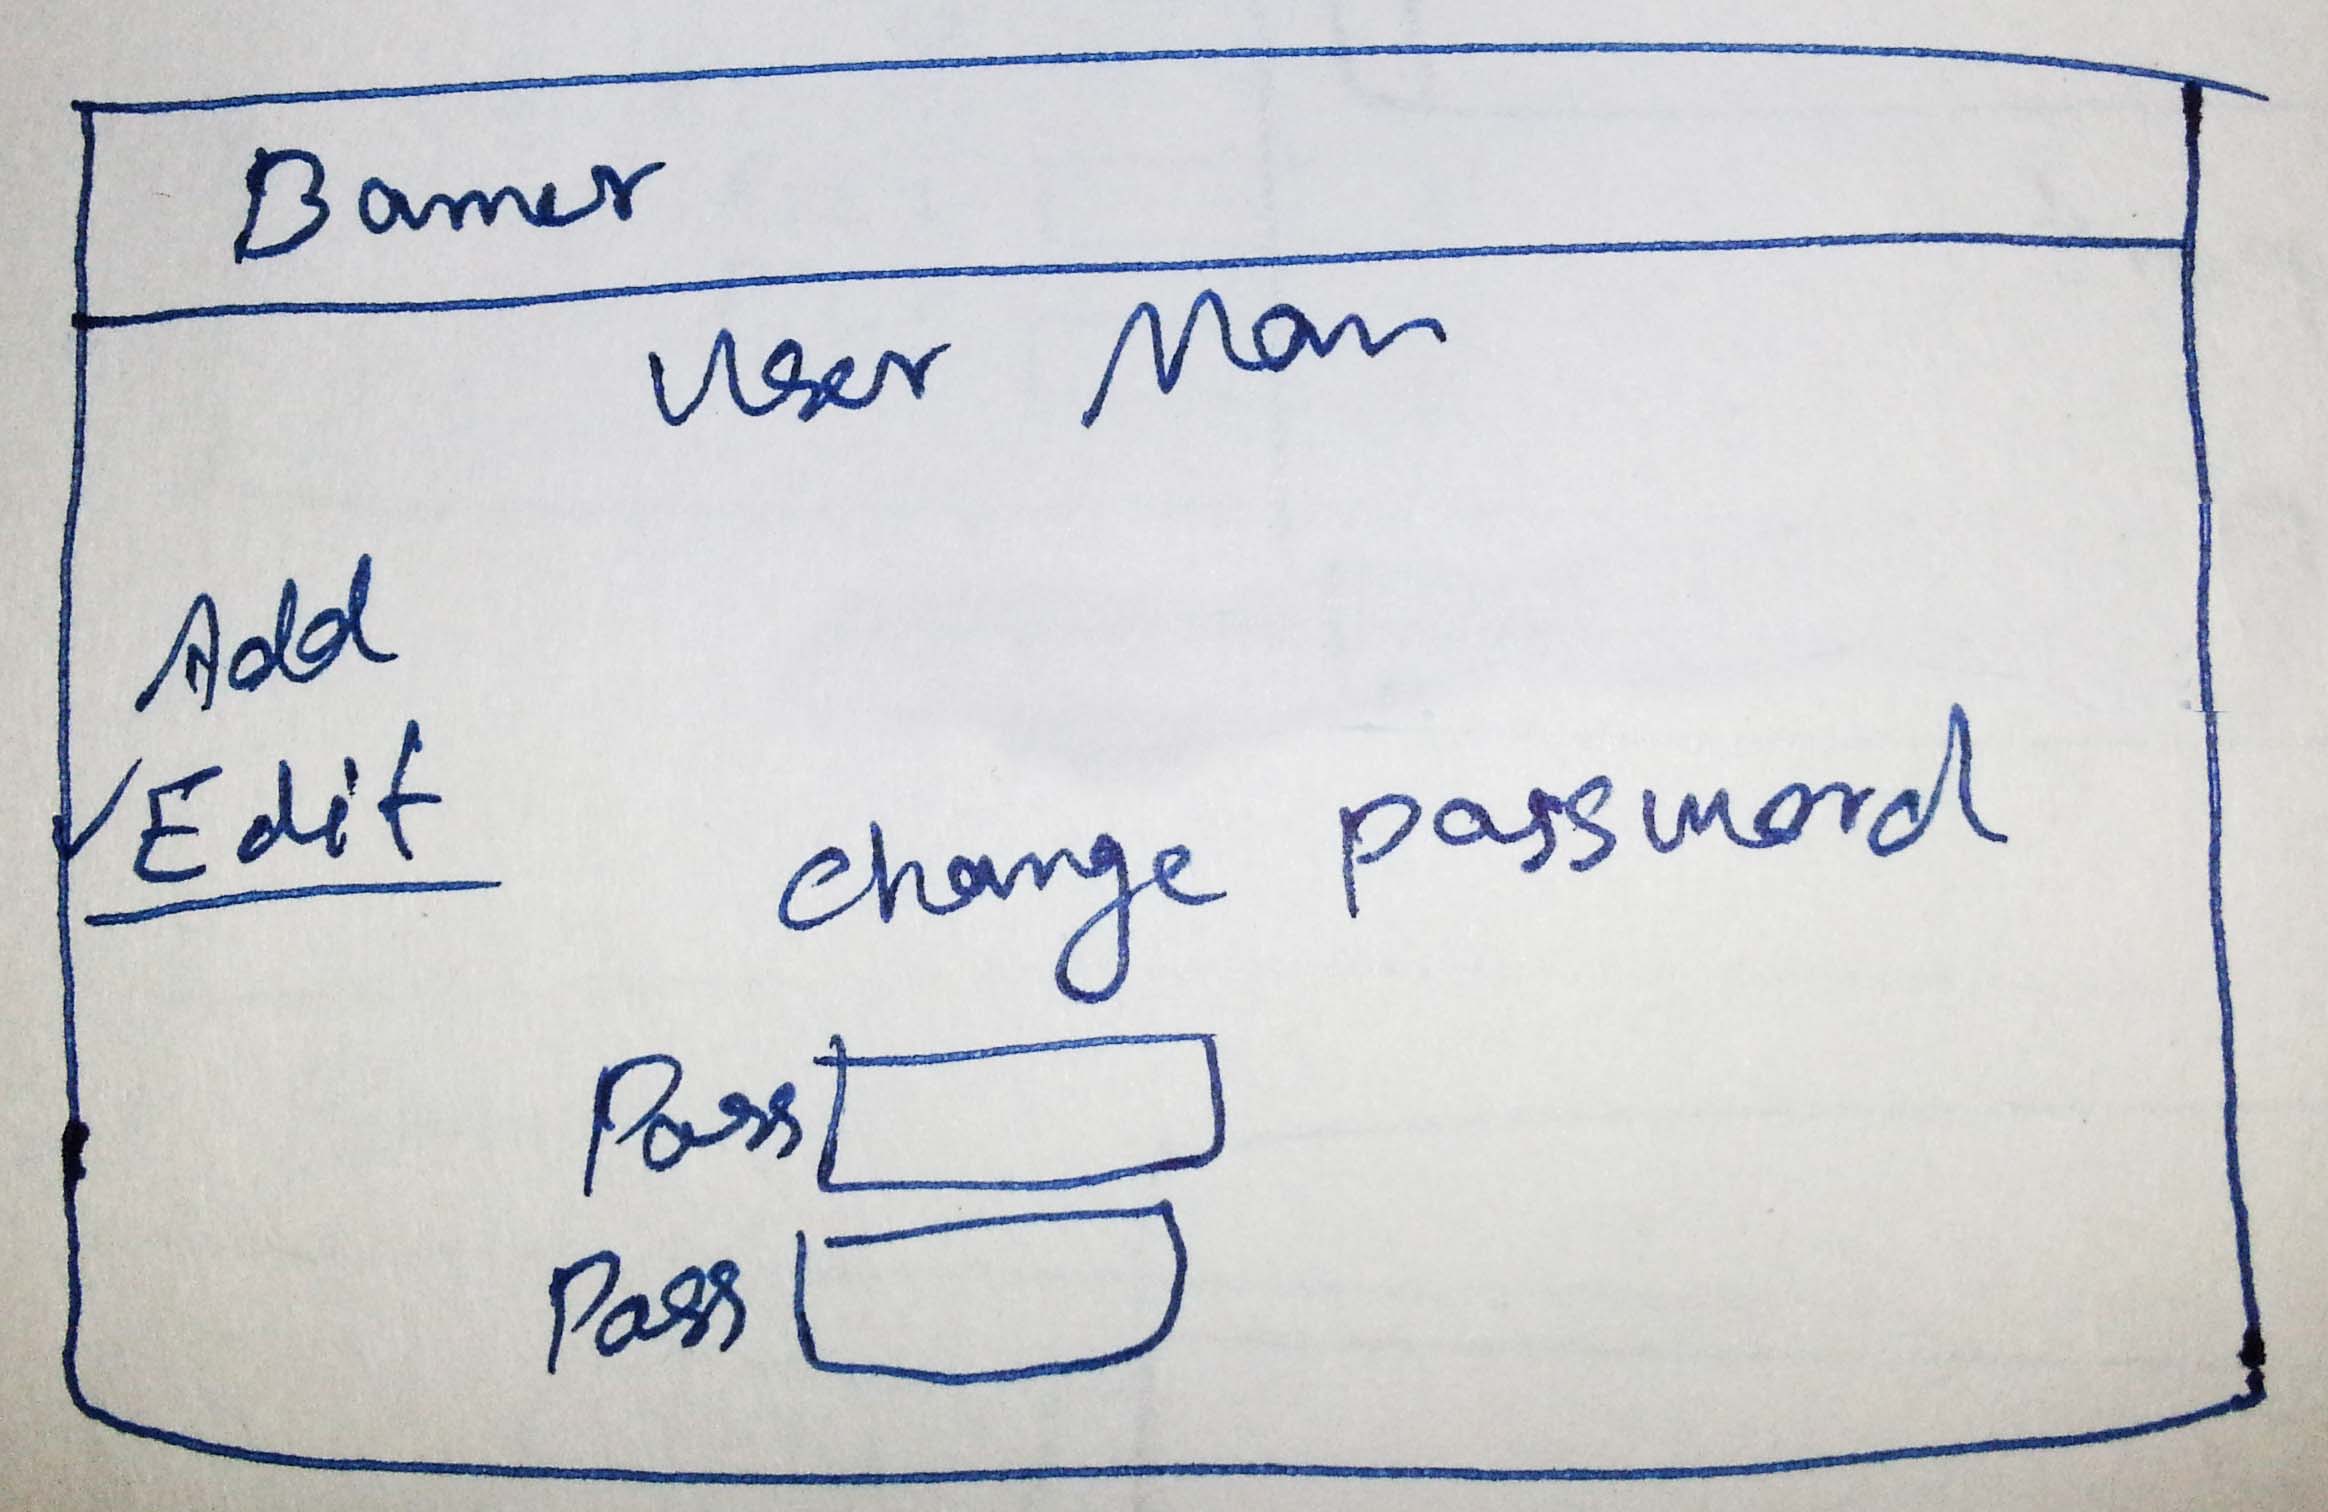 Banner
User Man
Add
✓ Edit
change password
Pass
Pass